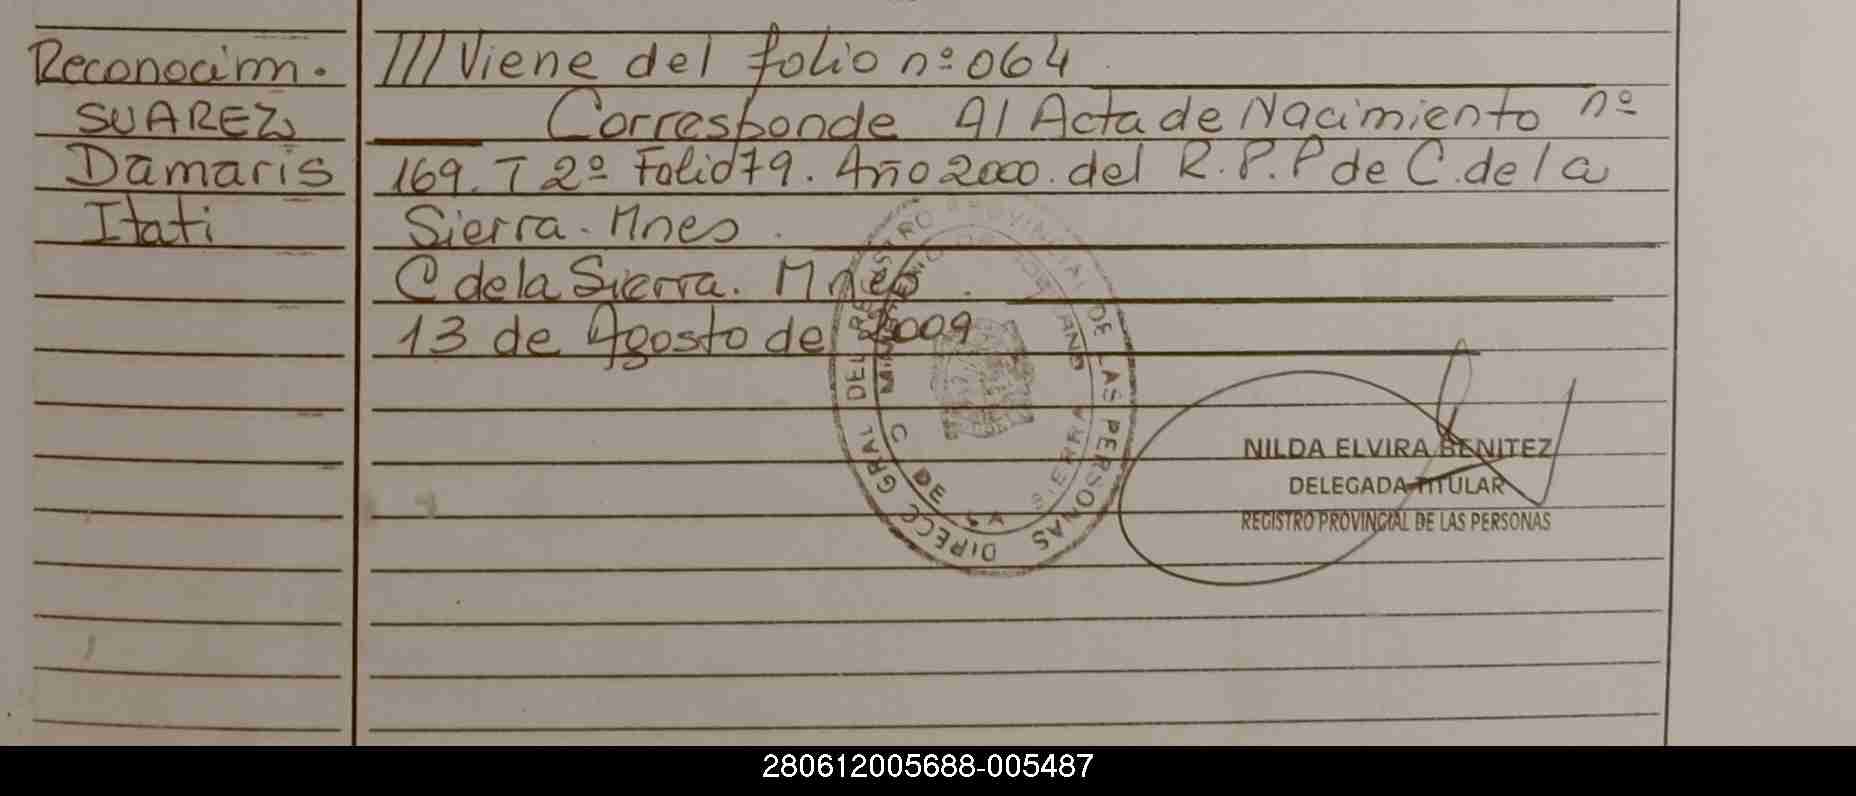 Reconocim.
SUAREZ
Damaris
Itati
///Viene del folio nº 064
Corresponde Al Acta de Nacimiento nº
169. T 2º Folio 79. Año 2000. del R.P.P de C. de la
Sierra. Mnes.
C de la Sierra. Mnes.
13 de Agosto de 2009
DIRECC GRAL DEL REGISTRO PROVINCIAL DE LAS PERSONAS
C DE LA SIERRA
NILDA ELVIRA BENITEZ
DELEGADA TITULAR
REGISTRO PROVINCIAL DE LAS PERSONAS
280612005688-005487